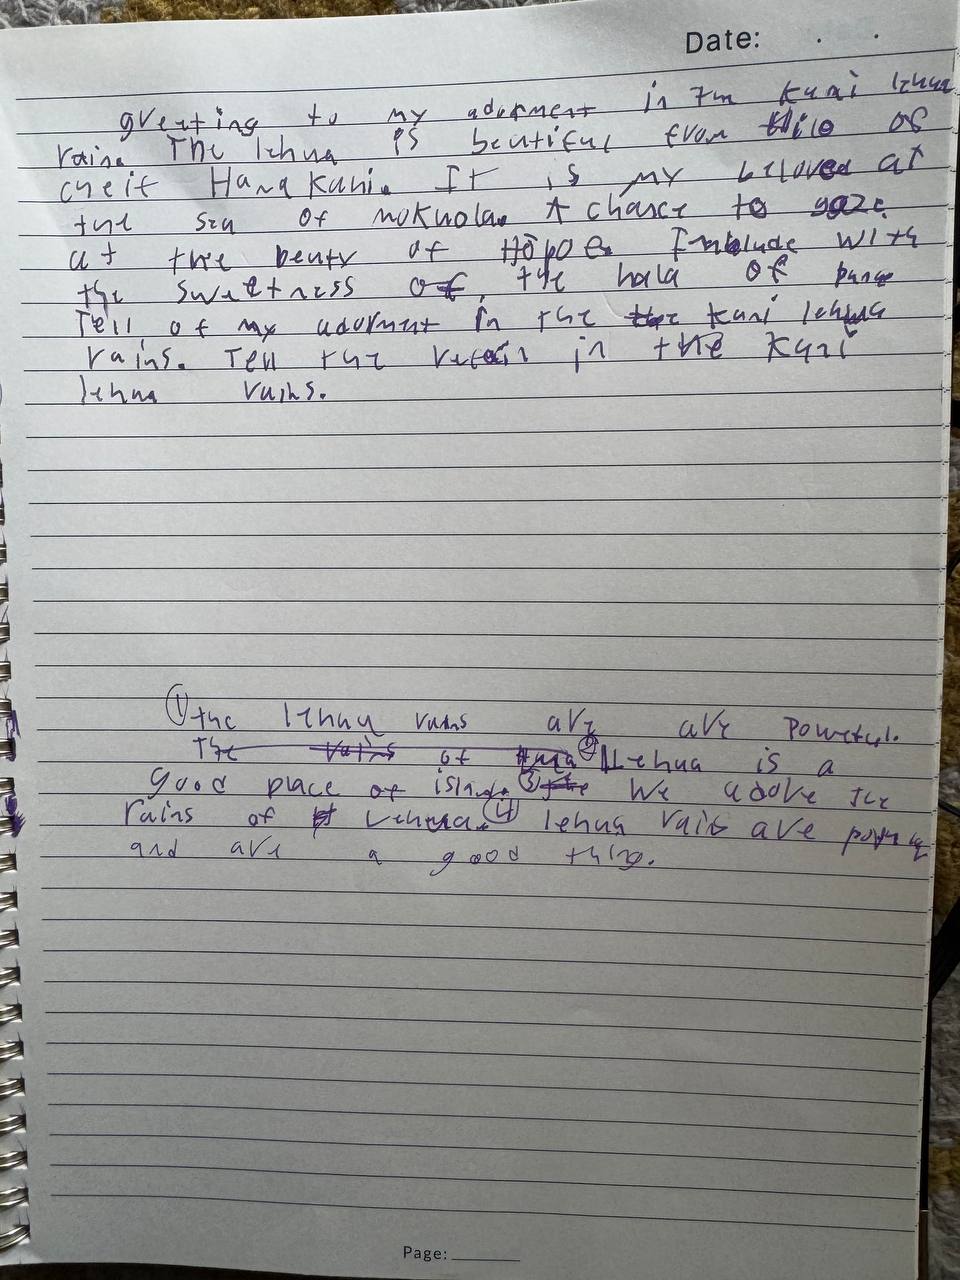 Date: . .
greating to my adorment in the Kani lehua
rain. The lehua is beutiful from Hilo of
cheif Hanakahi. It is my beloved at
the sea of mokuola. A chance to gaze
at the beuty of Hōpoe. Inklude with
the sweetness of the hala of puna
Tell of my adorment in the kani lehua
rains. Tell the in the Kani
lehua rains.
① the lehua rains are are powerful.
The rains of ② Lehua is a
good place of island. ③ We adore the
rains of Lehua. ④ lehua rais are
and are a good thing.
Page: